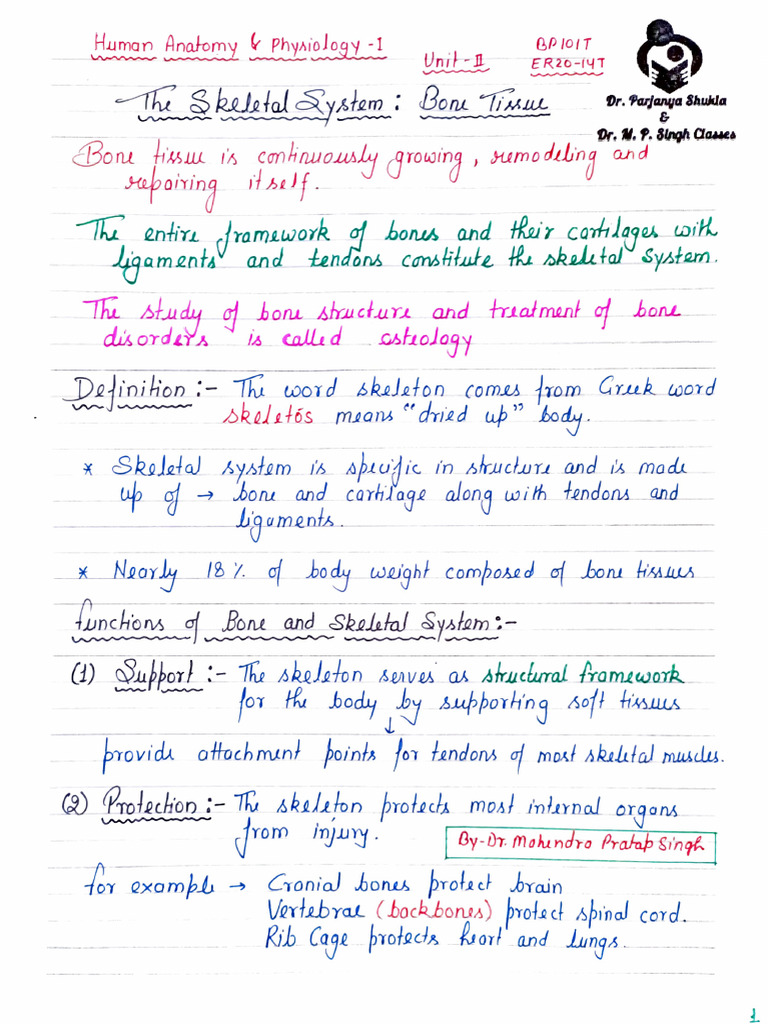 Human Anatomy & Physiology -1
Unit - II
BP101T
ER20-14T
Dr. Parjanya Shukla
&
Dr. M. P. Singh Classes
The Skeletal System : Bone Tissue
Bone tissue is continuously growing, remodeling and
repairing itself.
The entire framework of bones and their cartilages with
ligaments and tendons constitute the skeletal System.
The study of bone structure and treatment of bone
disorders is called osteology
Definition :- The word skeleton comes from Greek word
skeletós means "dried up" body.
* Skeletal system is specific in structure and is made
up of → bone and cartilage along with tendons and
ligaments.
* Nearly 18 % of body weight composed of bone tissues
functions of Bone and Skeletal System :-
(1) Support :- The skeleton serves as structural framework
for the body by supporting soft tissues
↓
provide attachment points for tendons of most skeletal muscles.
(2) Protection :- The skeleton protects most internal organs
from injury.
By - Dr. Mahendra Pratap Singh
for example → Cranial bones protect brain
Vertebrae (backbones) protect spinal cord.
Rib Cage protects heart and lungs.
1